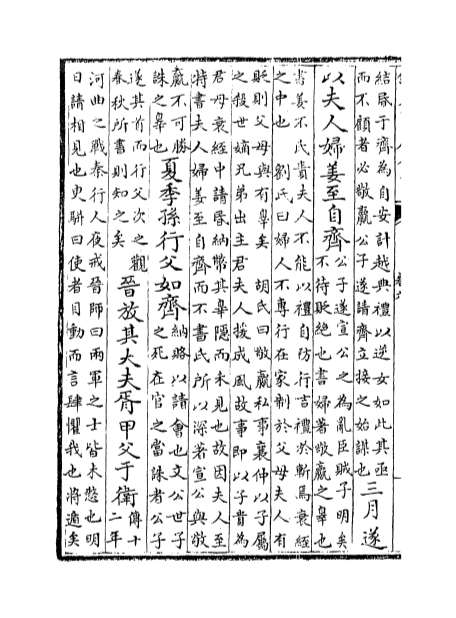 結昏于齊為自安計越典禮以逆女如此其亟
而不顧者必敬嬴公子遂請齊立接之始謀也
三月遂
以夫人婦姜至自齊
公子遂宣公之為亂臣賊子明矣
不待貶絶也書婦著敬嬴之辠也
書姜不氏貴夫人不能以禮自防行吉禮於斬焉衰絰
之中也 劉氏曰婦人不專行在家制於父母夫人有
貶則父母與有辠矣 胡氏曰敬嬴私事襄仲以子屬
之殺世嫡兄弟出主君夫人援成風故事即以子貴為
君母衰絰中請昏納幣其辠隱而未見也故因夫人至
特書夫人婦姜至自齊而不書氏所以深著宣公與敬
嬴不可勝
誅之辠也
夏季孫行父如齊
納賂以請會也文公世子
之死在官之當誅者公子
遂其首而行父次之觀
春秋所書則知之矣
晉放其大夫胥甲父于衛
傳十
二年
河曲之戰秦行人夜戒晉師曰兩軍之士皆未憖也明
日請相見也臾駢曰使者目動而言肆懼我也將遁矣